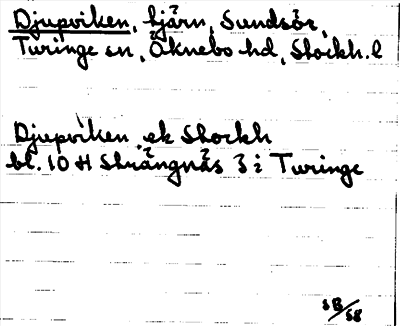 Djupviken, tjärn, Sundsör,
Turinge sn, Öknebo hd, Stockh. l
Djupviken ek Stockh
bl. 10 H Strängnäs 3 i Turinge
SB/58